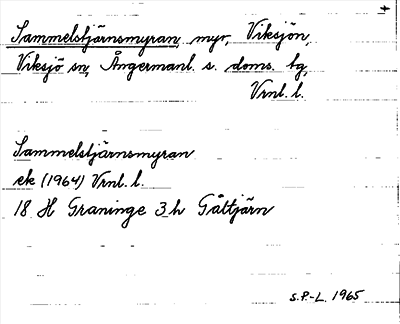 Sammelstjärnsmyran, myr, Viksjön,
Viksjö sn, Ångermanl. s. doms. tg,
Vrnl. l.
Sammelstjärnsmyran
ek (1964) Vrnl. l.
18 H Graninge 3 h Gåltjärn
S.P.-L. 1965